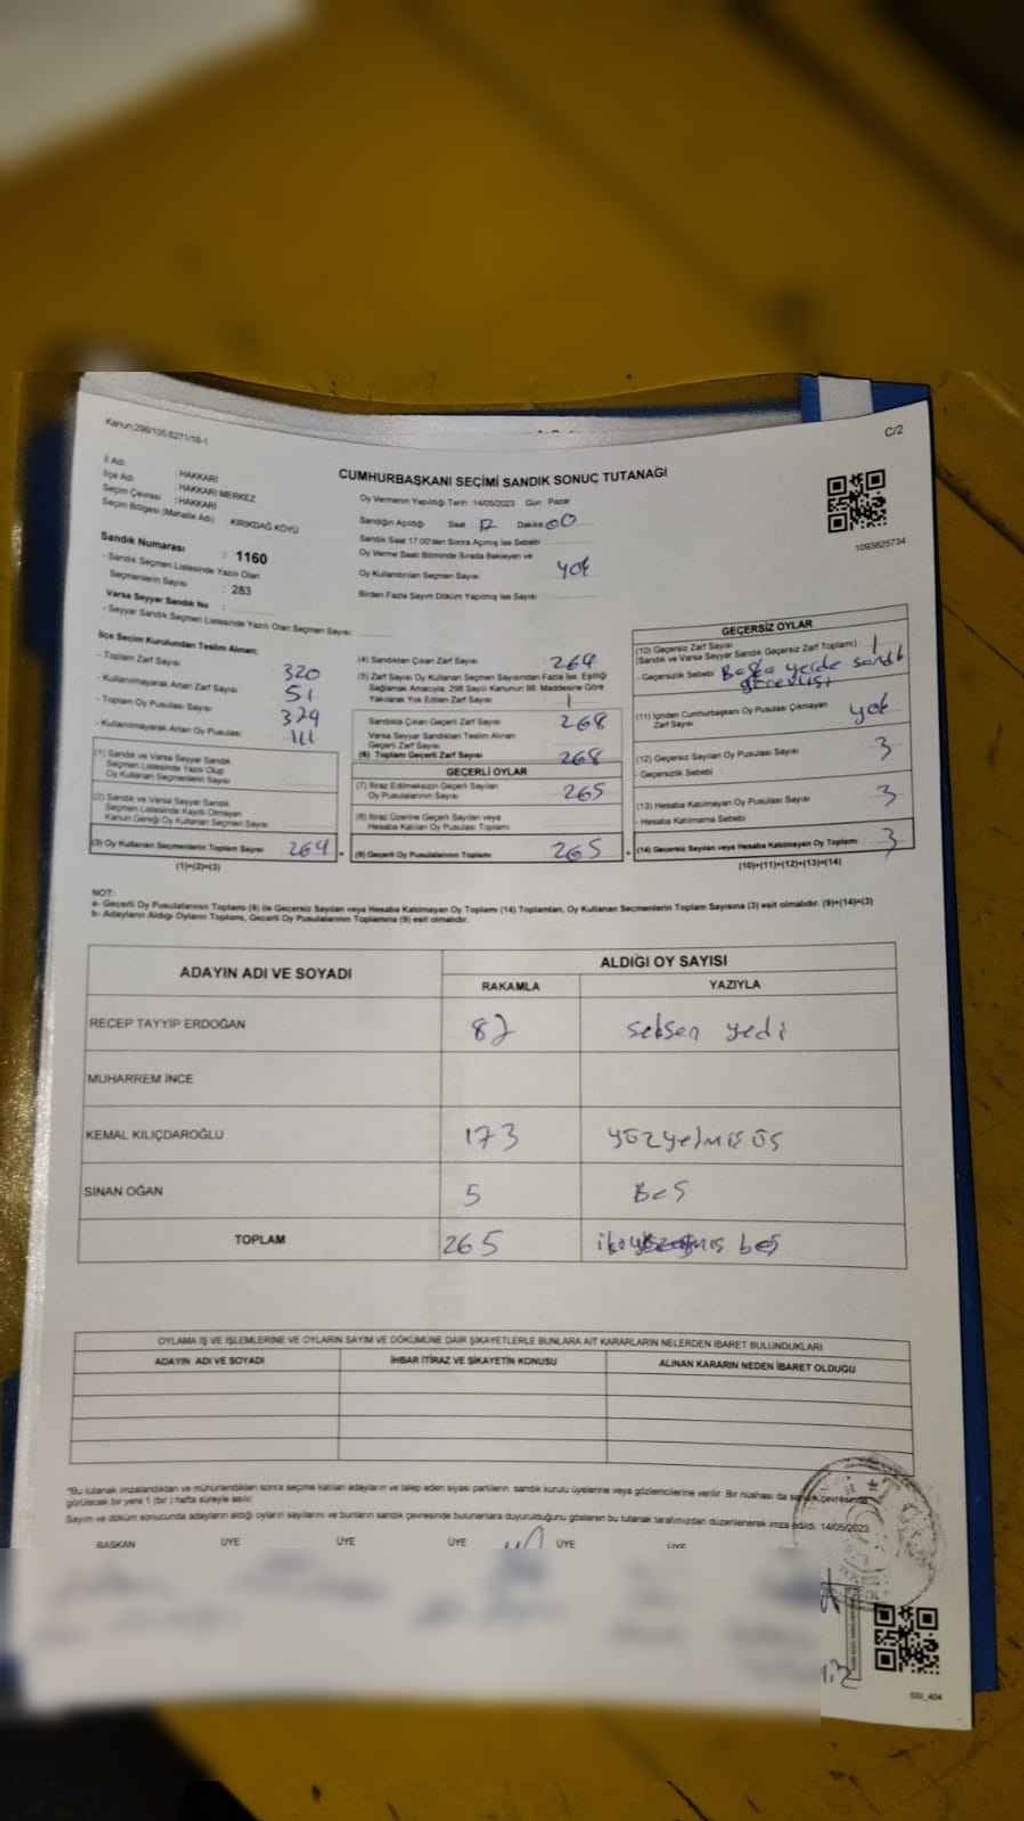 Kanun:298/105,6271/19-1
C/2
CUMHURBAŞKANI SEÇİMİ SANDIK SONUÇ TUTANAĞI
İl Adı : HAKKARİ
İlçe Adı : HAKKARİ MERKEZ
Seçim Çevresi : HAKKARİ
Seçim Bölgesi (Mahalle Adı) KIRIKDAĞ KÖYÜ
Sandık Numarası : 1160
- Sandık Seçmen Listesinde Yazılı Olan
Seçmenlerin Sayısı : 283
Varsa Seyyar Sandık No :
- Seyyar Sandık Seçmen Listesinde Yazılı Olan Seçmen Sayısı
Oy Vermenin Yapıldığı Tarih :14/05/2023 Gün : Pazar
Sandığın Açıldığı Saat Dakika 00
Sandık Saat 17.00'den Sonra Açılmış İse Sebebi
Oy Verme Saati Bitiminde Sırada Bekleyen ve
Oy Kullandırılan Seçmen Sayısı yok
Birden Fazla Sayım Döküm Yapılmış İse Sayısı
1093625734
İlçe Seçim Kurulundan Teslim Alınan;
- Toplam Zarf Sayısı 320
- Kullanılmayarak Artan Zarf Sayısı 51
- Toplam Oy Pusulası Sayısı 379
- Kullanılmayarak Artan Oy Pusulası 111
(1) Sandık ve Varsa Seyyar Sandık
Seçmen Listesinde Yazılı Olup
Oy Kullanan Seçmenlerin Sayısı
(2) Sandık ve Varsa Seyyar Sandık
Seçmen Listesinde Kayıtlı Olmayan
Kanun Gereği Oy Kullanan Seçmen Sayısı
(3) Oy Kullanan Seçmenlerin Toplam Sayısı 269
(1)+(2)=(3)
(4) Sandıktan Çıkan Zarf Sayısı 269
(5) Zarf Sayısı Oy Kullanan Seçmen Sayısından Fazla İse, Eşitliği
Sağlamak Amacıyla, 298 Sayılı Kanunun 98. Maddesine Göre
Yakılarak Yok Edilen Zarf Sayısı 1
Sandıkta Çıkan Geçerli Zarf Sayısı 268
Varsa Seyyar Sandıktan Teslim Alınan
Geçerli Zarf Sayısı
(6) Toplam Geçerli Zarf Sayısı 268
GEÇERLİ OYLAR
(7) İtiraz Edilmeksizin Geçerli Sayılan
Oy Pusulalarının Sayısı 265
(8) İtiraz Üzerine Geçerli Sayılan veya
Hesaba Katılan Oy Pusulası Toplamı
(9) Geçerli Oy Pusulalarının Toplamı 265
GEÇERSİZ OYLAR
(10) Geçersiz Zarf Sayısı
(Sandık ve Varsa Seyyar Sandık Geçersiz Zarf Toplamı) : 1
- Geçersizlik Sebebi Başka yerde sandık
görevlisi
(11) İçinden Cumhurbaşkanı Oy Pusulası Çıkmayan
Zarf Sayısı yok
(12) Geçersiz Sayılan Oy Pusulası Sayısı 3
- Geçersizlik Sebebi
(13) Hesaba Katılmayan Oy Pusulası Sayısı 3
- Hesaba Katılmama Sebebi
(14) Geçersiz Sayılan veya Hesaba Katılmayan Oy Toplamı 3
(10)+(11)+(12)+(13)=(14)
NOT:
a- Geçerli Oy Pusulalarının Toplamı (9) ile Geçersiz Sayılan veya Hesaba Katılmayan Oy Toplamı (14) Toplamları, Oy Kullanan Seçmenlerin Toplam Sayısına (3) eşit olmalıdır. (9)+(14)=(3)
b- Adayların Aldığı Oyların Toplamı, Geçerli Oy Pusulalarının Toplamına (9) eşit olmalıdır.
ADAYIN ADI VE SOYADI ALDIĞI OY SAYISI
RAKAMLA YAZIYLA
RECEP TAYYİP ERDOĞAN 87 seksen yedi
MUHARREM İNCE
KEMAL KILIÇDAROĞLU 173 yüzyetmiş üç
SİNAN OĞAN 5 Beş
TOPLAM 265 beş
OYLAMA İŞ VE İŞLEMLERİNE VE OYLARIN SAYIM VE DÖKÜMÜNE DAİR ŞİKAYETLERLE BUNLARA AİT KARARLARIN NELERDEN İBARET BULUNDUKLARI
ADAYIN ADI VE SOYADI İHBAR İTİRAZ VE ŞİKAYETİN KONUSU ALINAN KARARIN NEDEN İBARET OLDUĞU
*Bu tutanak imzalandıktan ve mühürlendikten sonra seçime katılan adayların ve talep eden siyasi partilerin, sandık kurulu üyelerine veya gözlemcilerine verilir. Bir nüshası da sandık çevresinde
görülecek bir yere 1 (bir) hafta süreyle asılır.
Sayım ve döküm sonucunda adayların aldığı oyların sayılarını ve bunların sandık çevresinde bulunanlara duyurulduğunu gösteren bu tutanak tarafımızdan düzenlenerek imza edildi. 14/05/2023
BAŞKAN ÜYE ÜYE ÜYE ÜYE ÜYE